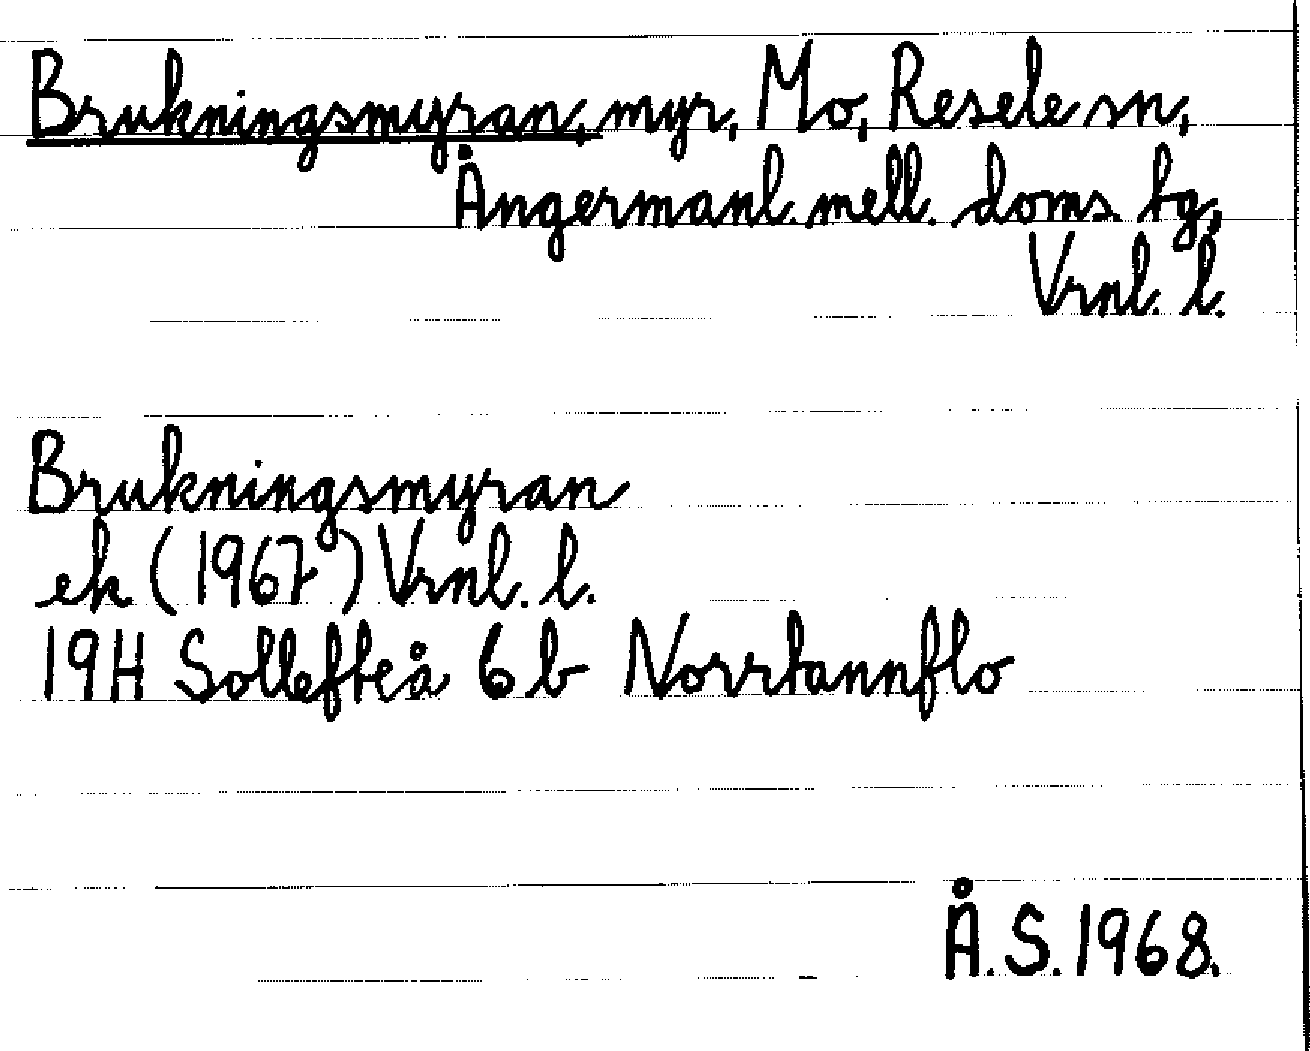 Brukningsmyran, myr, Mo, Resele sn,
Ångermanl. mell. doms. fg,
Vrnl. l.
Brukningsmyran
ek (1967) Vrnl. l.
19H Sollefteå 6 b Norrtannflo
Å.S. 1968.